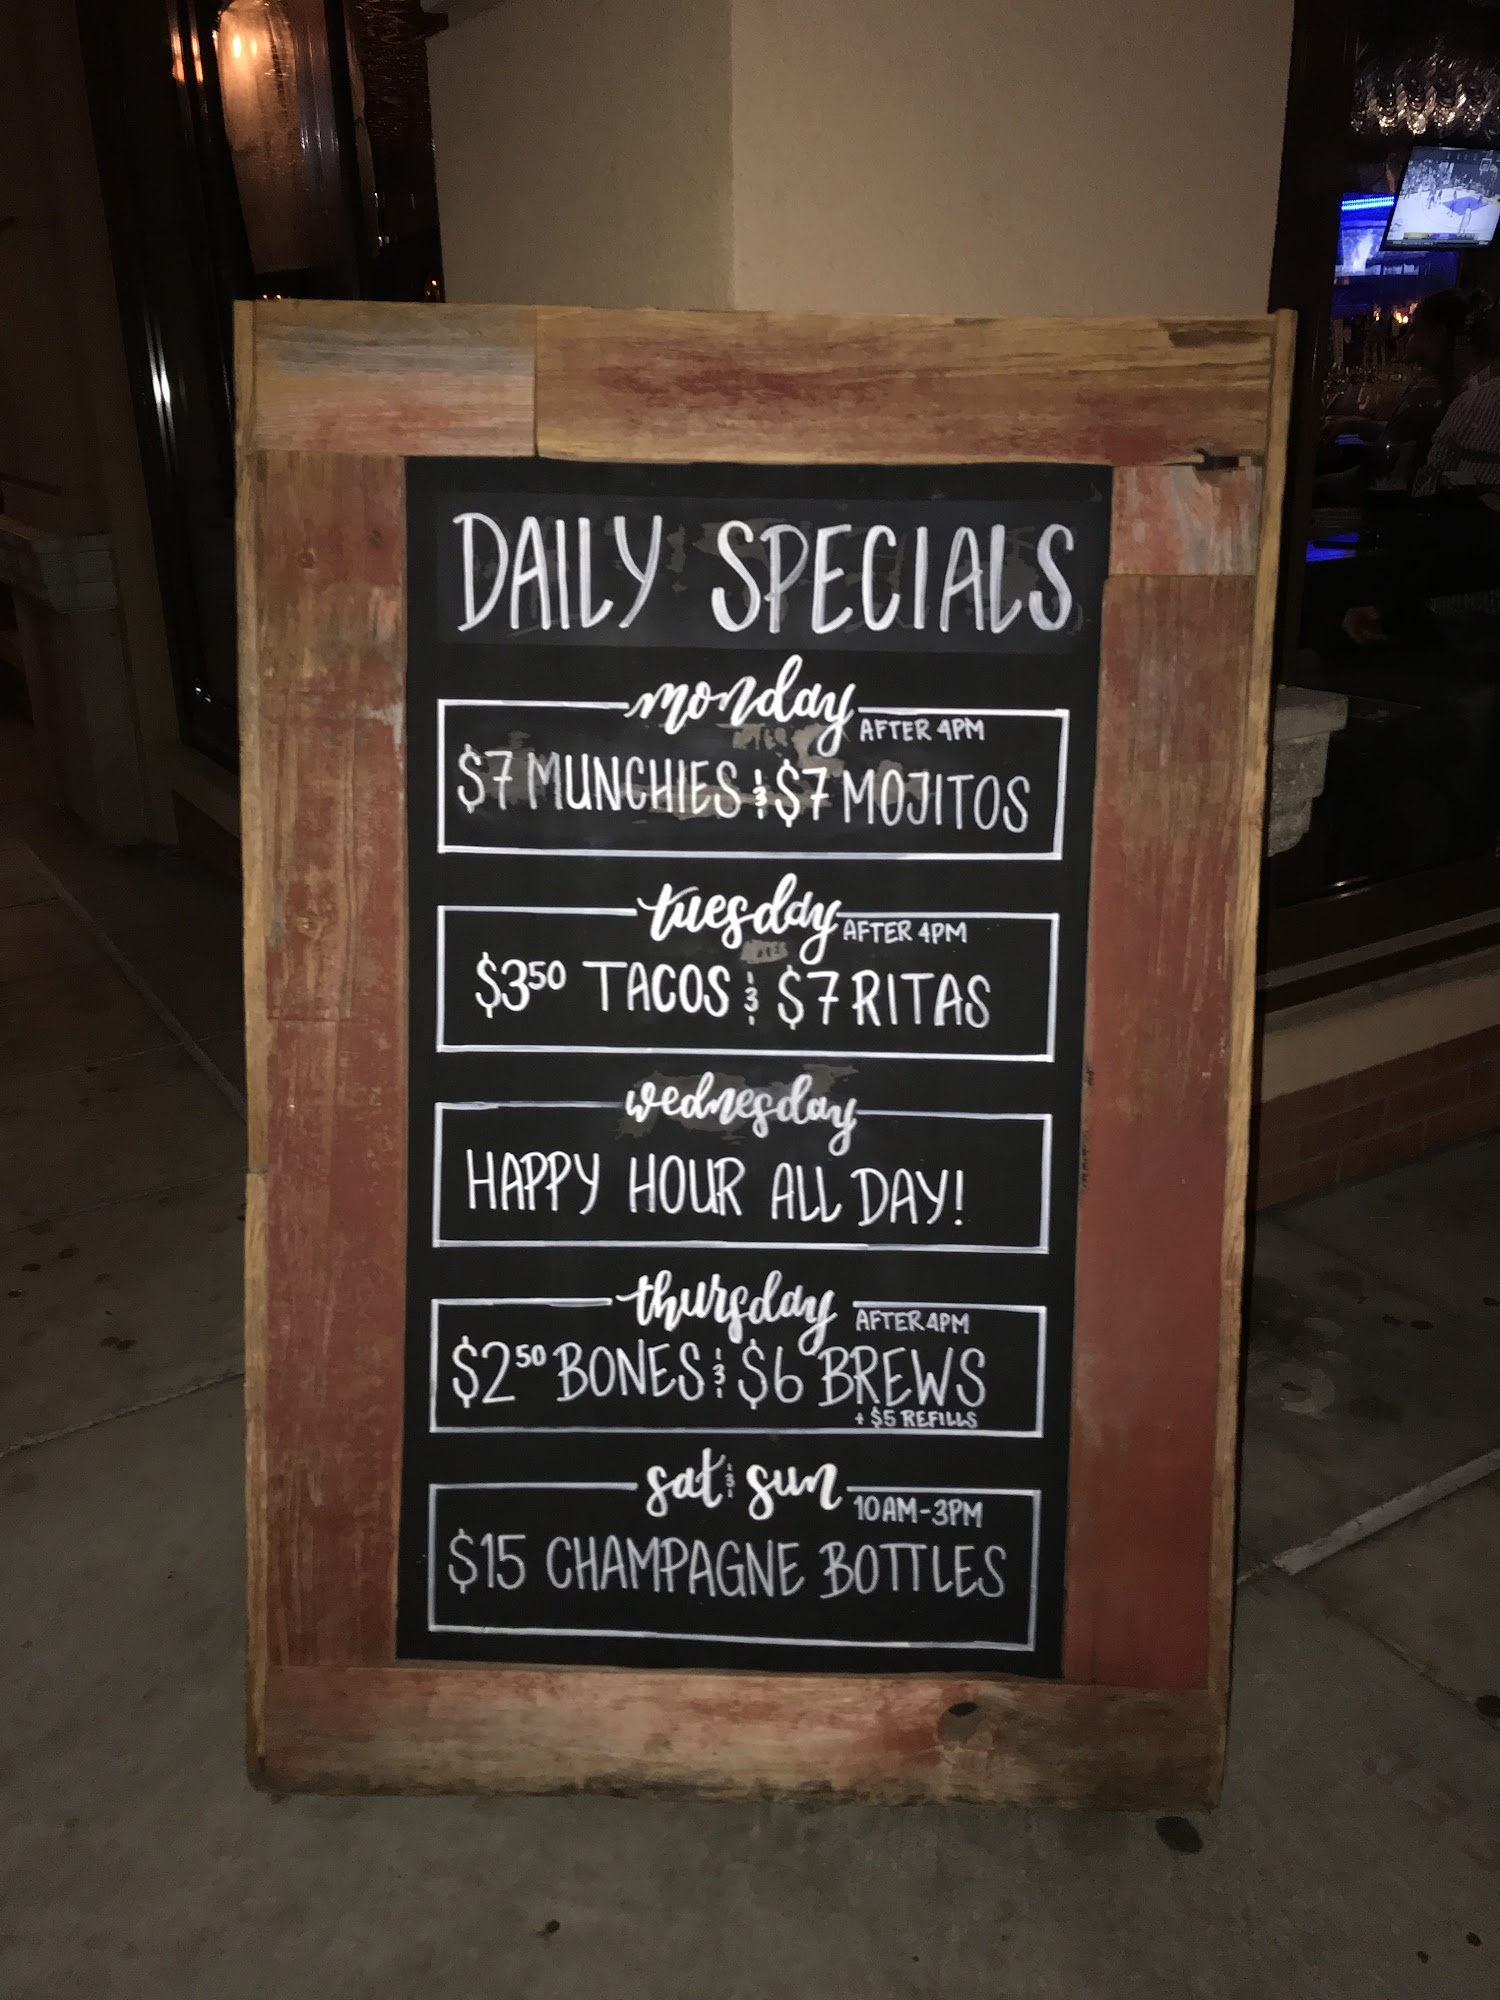 DAILY SPECIALS
monday
AFTER 4PM
$7 MUNCHIES & $7 MOJITOS
tuesday
AFTER 4PM
$3.50 TACOS & $7 RITAS
wednesday
HAPPY HOUR ALL DAY!
thursday
AFTER 4PM
$2.50 BONES & $6 BREWS
+ $5 REFILLS
sat & sun
10AM-3PM
$15 CHAMPAGNE BOTTLES